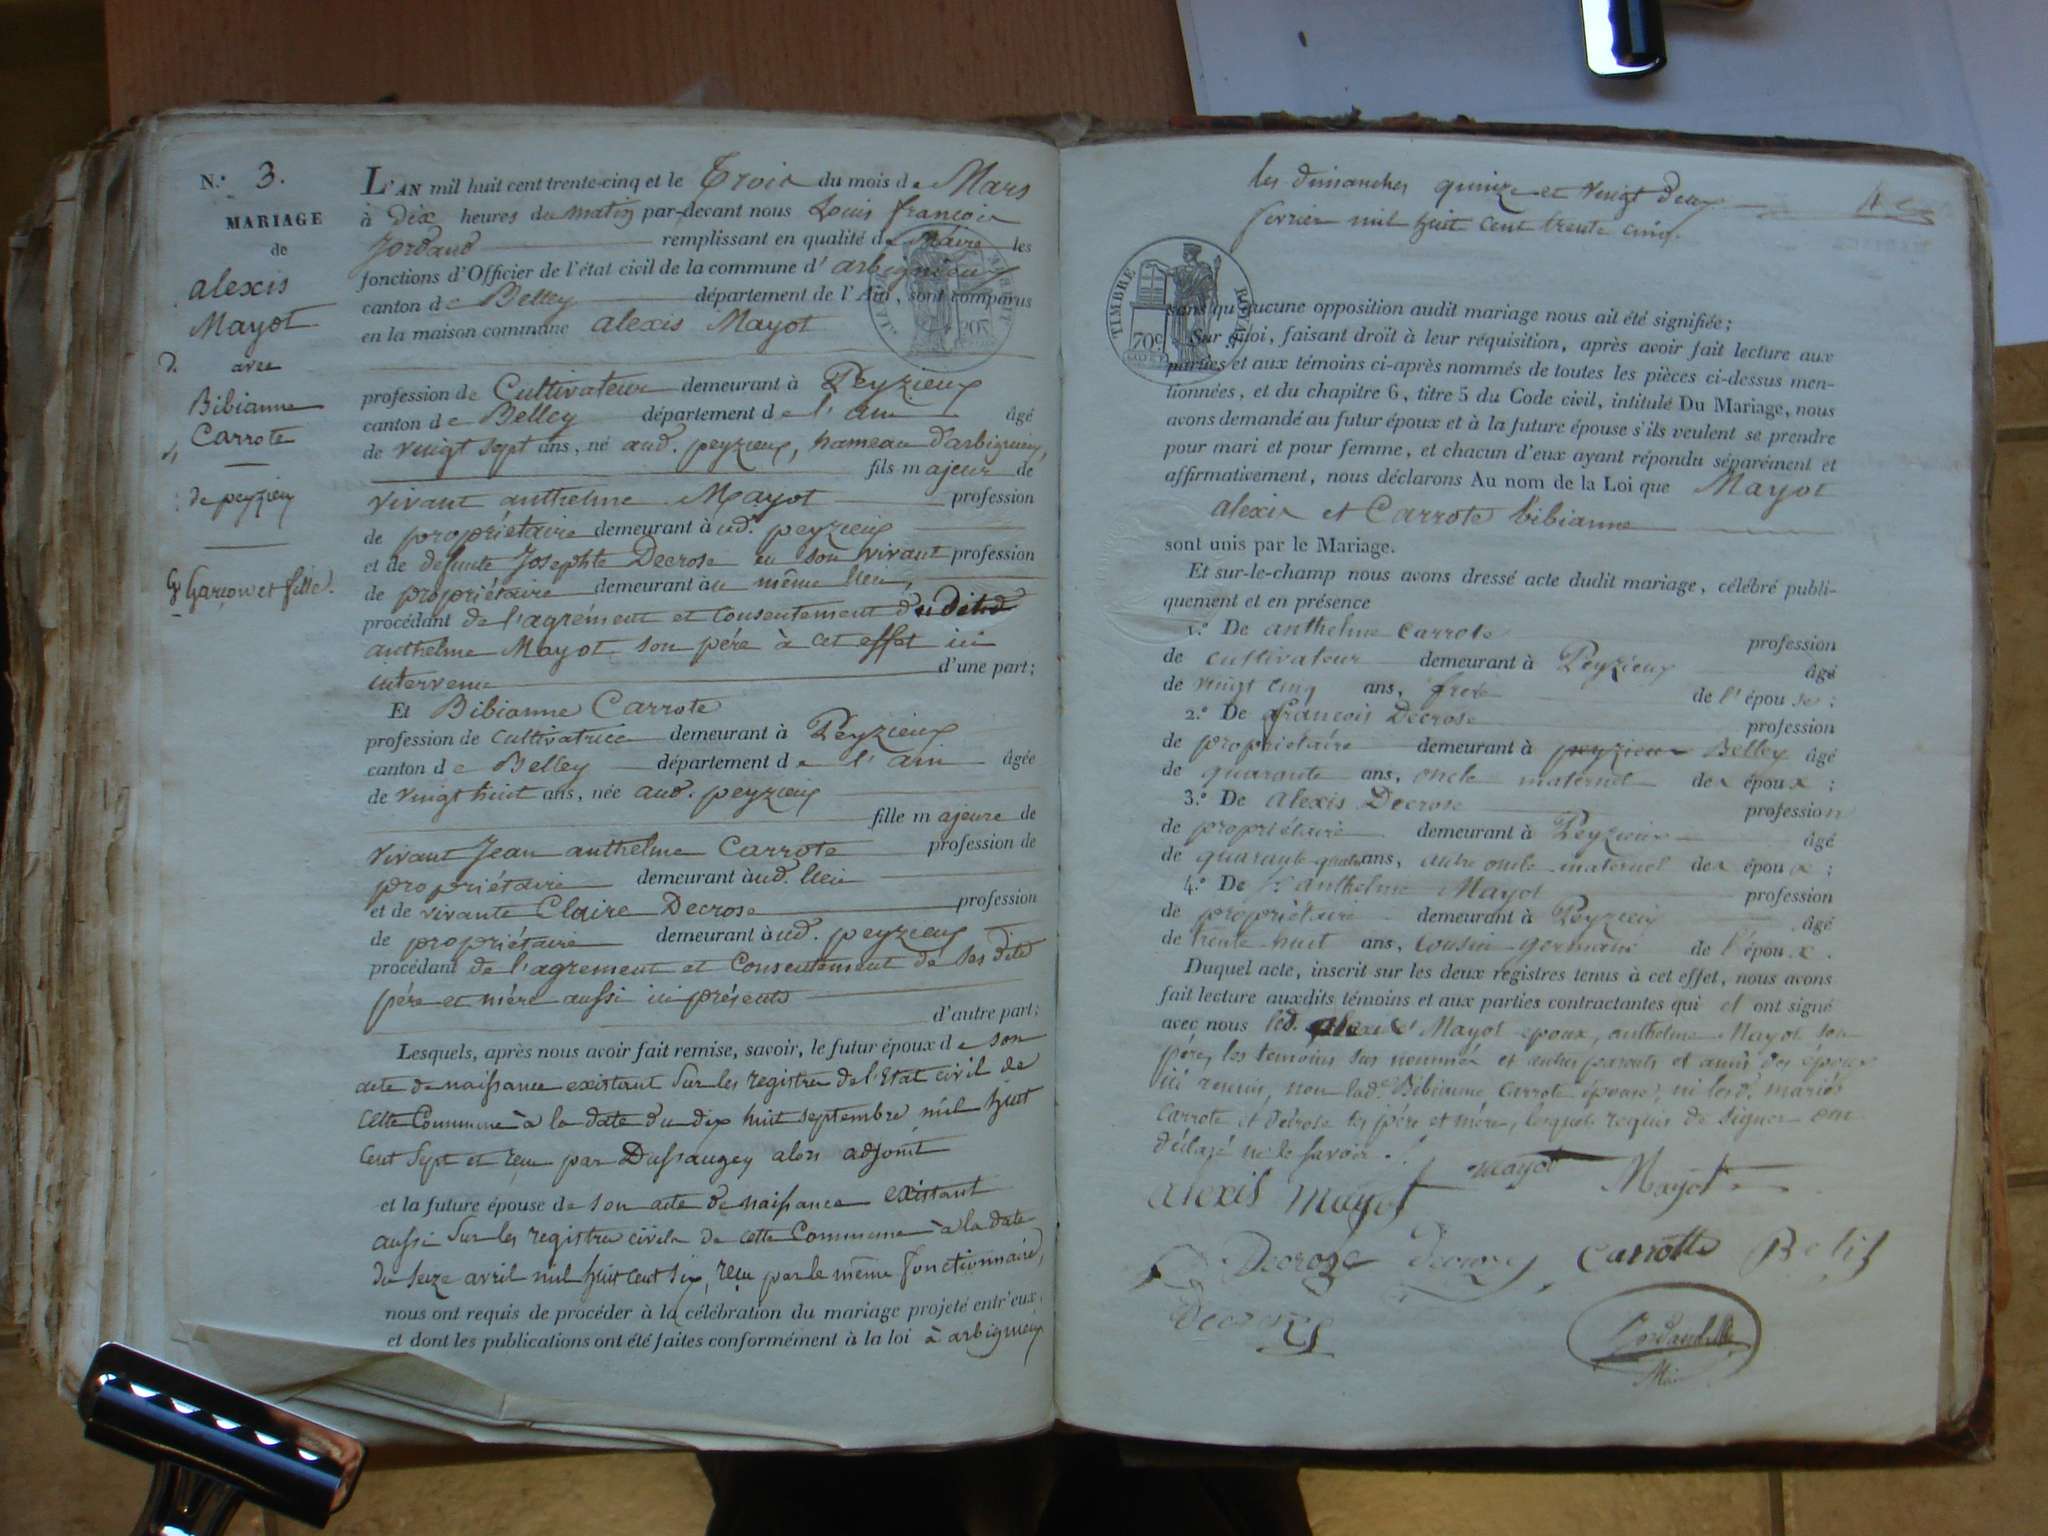 N.º 3.
MARIAGE
de
alexis
Mayot
avec
Bibianne
Carrote
de peyzieu
Garçon et fille.
L'AN mil huit cent trente-cinq et le Trois du mois de Mars
à Dix heures du matin par-devant nous Louis françois
Jordand remplissant en qualité de Maire les
fonctions d'Officier de l'état civil de la commune d'arbignieu
canton de Belley département de l'Ain, sont comparus
en la maison commune alexis Mayot
profession de Cultivateur demeurant à Peyzieux
canton de Belley département de l'ain âgé
de vingt sept ans, né aud. peyzieux, hameau d'arbignieu,
fils majeur de
vivant anthelme Mayot profession
de propriétaire demeurant à ud. peyzieux
et de defunte Josephte Decrose en son vivant profession
de propriétaire demeurant àu même lieu,
procédant de l'agrément et consentement du dit
anthelme Mayot son père à cet effet ici
intervenu d'une part;
Et Bibianne Carrote
profession de cultivatrice demeurant à Peyzieux
canton de Belley département de l'ain âgée
de vingt huit ans, née aud. peyzieux
fille majeure de
vivant Jean anthelme Carrote profession de
propriétaire demeurant àud. lieu
et de vivante Claire Decrose profession
de propriétaire demeurant àud. peyzieux
procédant de l'agrement et consentement de ses dits
père et mère aussi ici présents
d'autre part;
Lesquels, après nous avoir fait remise, savoir, le futur époux de son
acte de naissance existant sur les registres de l'Etat civil de
cette Commune à la date du dix huit septembre mil huit
cent sept et reçu par Dussaugey alors adjoint
et la future épouse de son acte de naissance existant
aussi sur les registres civils de cette Commune à la date
du seize avril mil huit cent six, reçu par le même fonctionnaire,
nous ont requis de procéder à la célébration du mariage projeté entr'eux,
et dont les publications ont été faites conformément à la loi à arbignieu
les dimanches quinze et vingt deux
fevrier mil huit cent trente cinq.
TIMBRE ROYAL
70c
sans qu'aucune opposition audit mariage nous ait été signifiée;
Sur quoi, faisant droit à leur réquisition, après avoir fait lecture aux
parties et aux témoins ci-après nommés de toutes les pièces ci-dessus men-
tionnées, et du chapitre 6, titre 5 du Code civil, intitulé Du Mariage, nous
avons demandé au futur époux et à la future épouse s'ils veulent se prendre
pour mari et pour femme, et chacun d'eux ayant répondu séparément et
affirmativement, nous déclarons Au nom de la Loi que Mayot
alexis et Carrote bibianne
sont unis par le Mariage.
Et sur-le-champ nous avons dressé acte dudit mariage, célébré publi-
quement et en présence
1.º De anthelme carrote profession
de cultivateur demeurant à Peyzieux âgé
de vingt cinq ans, frere de l'épouse;
2.º De françois Decrose profession
de propriétaire demeurant à peyzieux Belley âgé
de quarante ans, oncle maternel de époux;
3.º De alexis Decrose profession
de propriétaire demeurant à Peyzieux âgé
de quarante quatre ans, autre oncle maternel de époux;
4.º De anthelme Mayot profession
de propriétaire demeurant à Peyzieux âgé
de trente huit ans, cousin germain de l'époux.
Duquel acte, inscrit sur les deux registres tenus à cet effet, nous avons
fait lecture auxdits témoins et aux parties contractantes qui et ont signé
avec nous led. alexis Mayot epoux, anthelme Mayot son
père, les temoins sus nommés et autres parents et amis des époux
ici reunis, non lad. Bibianne Carrote épouse, ni lesd. mariés
carrote et decrose ses père et mère, lesquels requis de signer ont
déclaré ne le savoir.
alexis mayot mayot Mayot
Decroze Decroze Carrotte Belif
Decroze Jordand